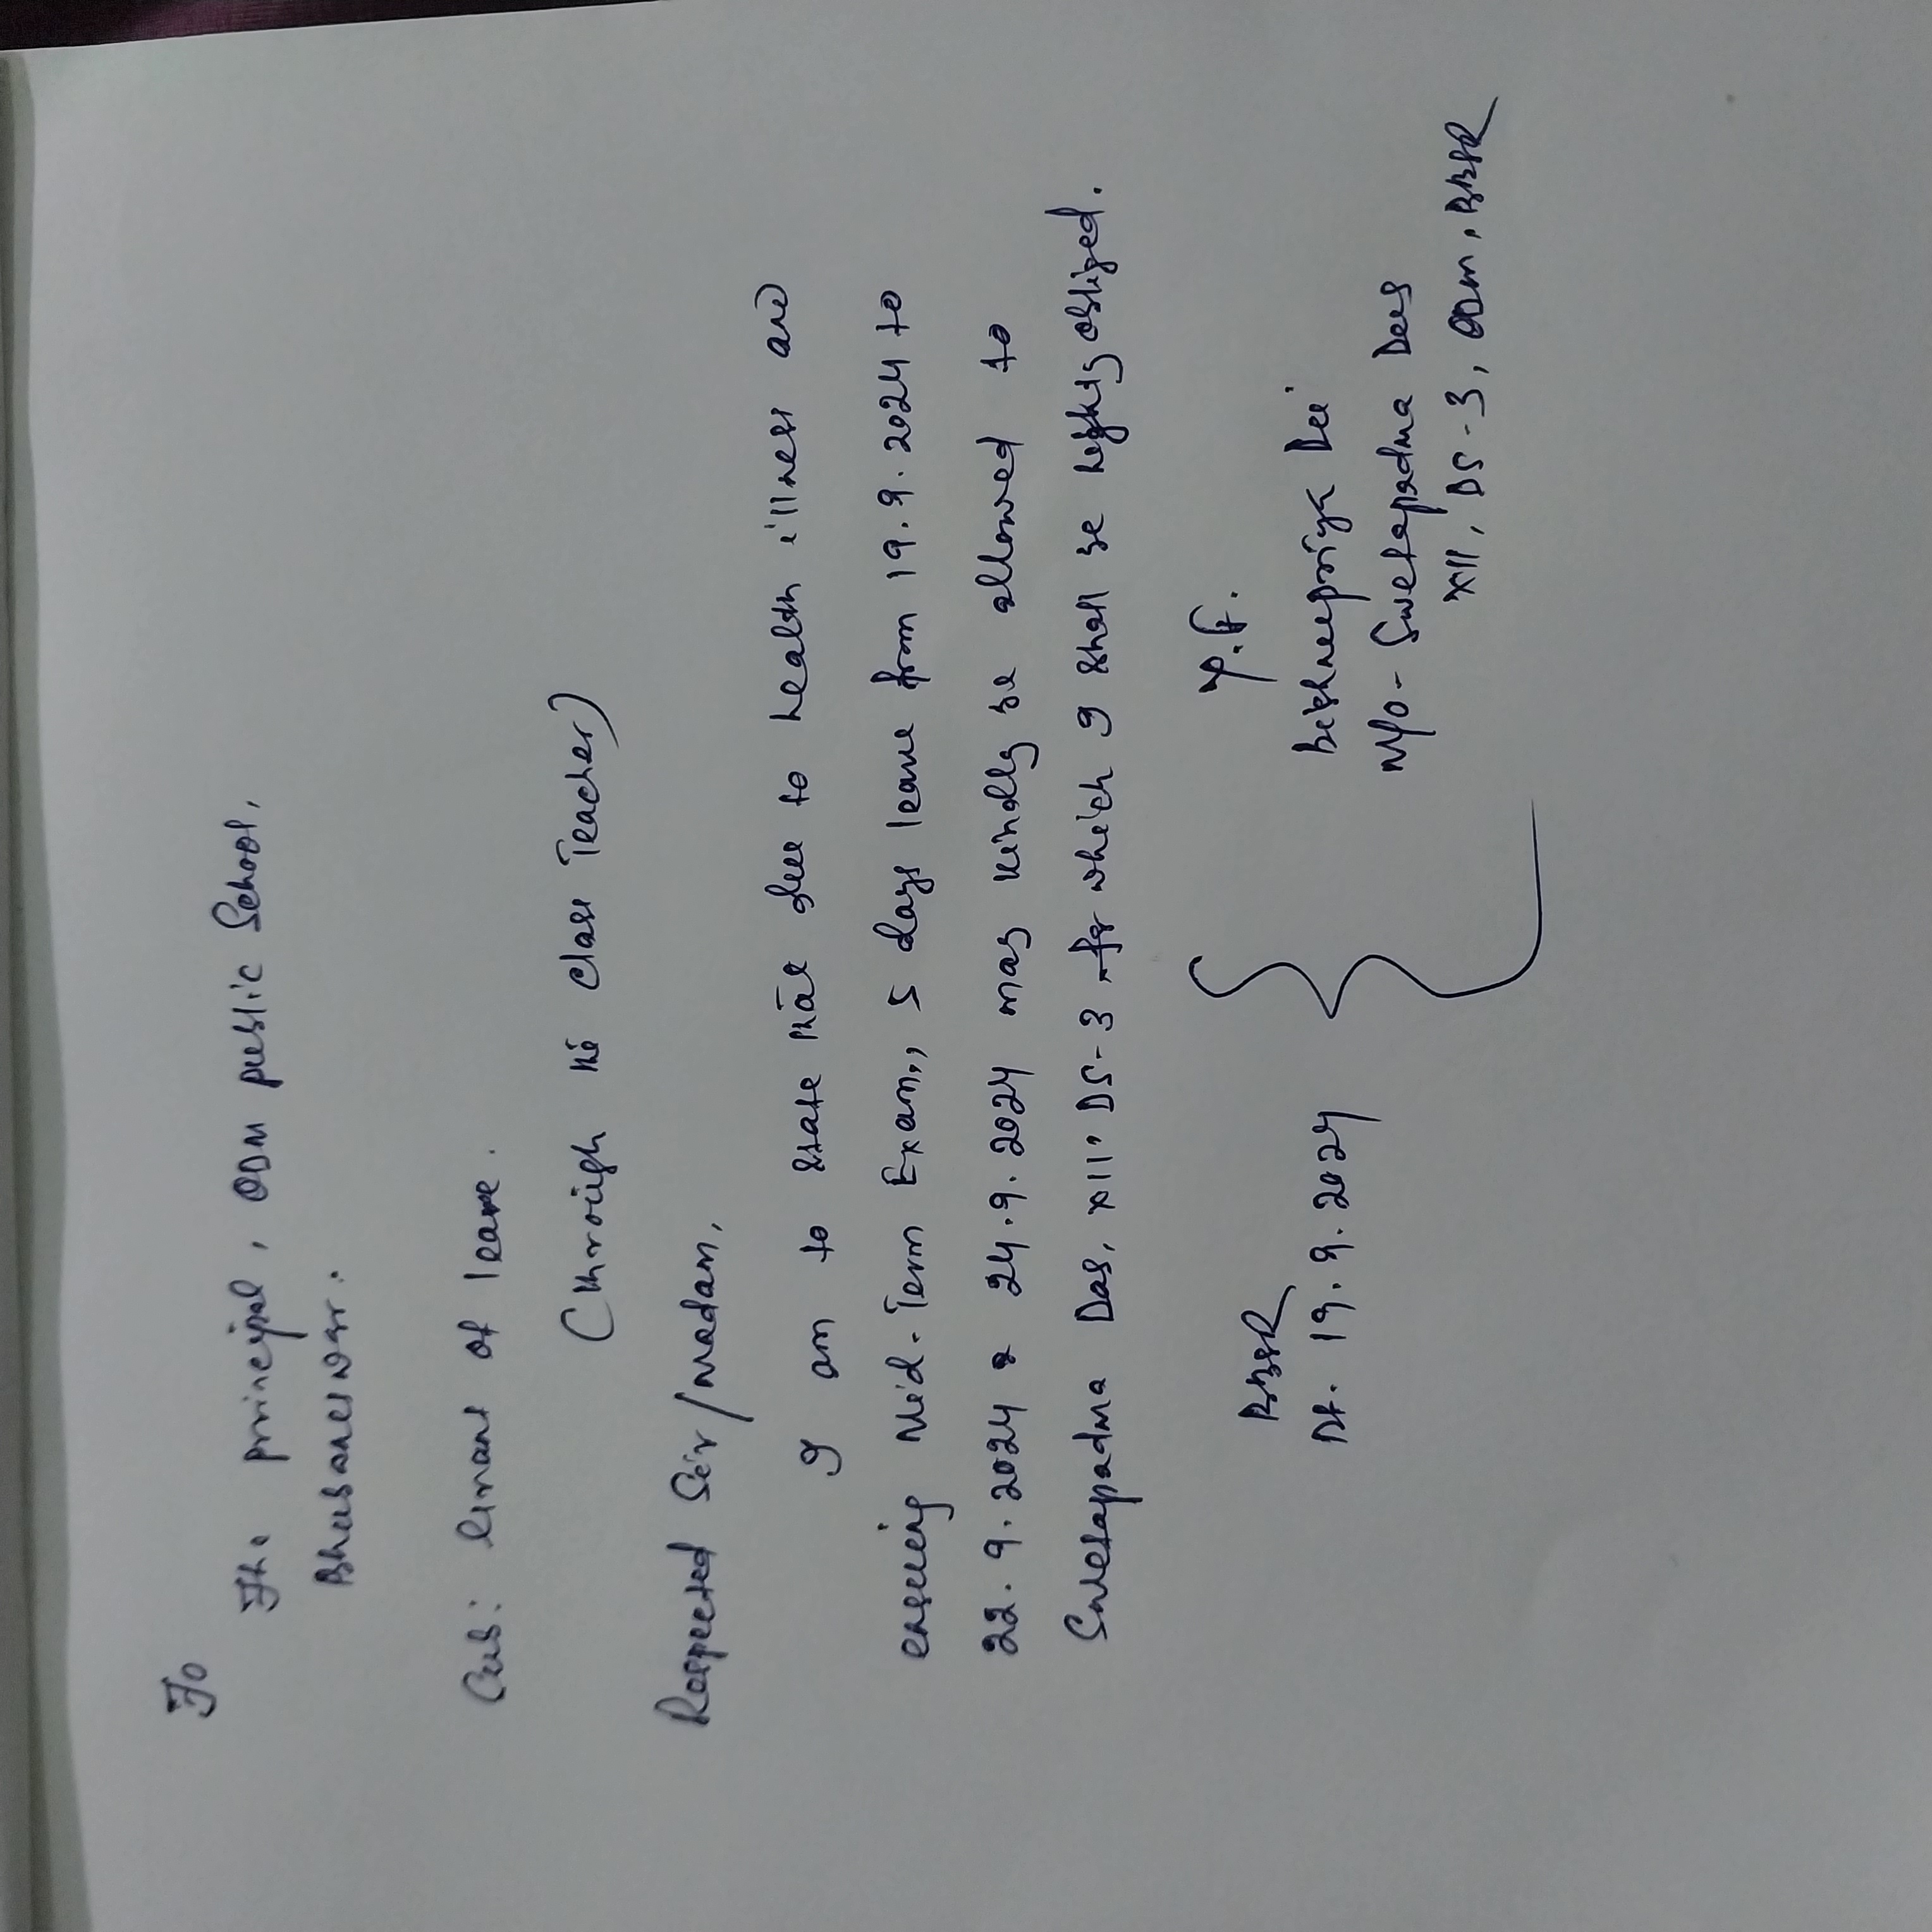 To
The principal, ODM public School,
Bhubaneswar.
Sub: Grant of leave.
(Through the class Teacher)
Respected Sir/Madam,
I am to state that due to health illness and
ensuing Mid-Term Exam., 5 days leave from 19.9.2024 to
22.9.2024 & 24.9.2024 may kindly be allowed to
Swetapadma Das, XII, DS-3 for which I shall be highly obliged.
Y.f.
BBSR
Dt. 19.9.2024
Bishnupriya Dei
M/O- Swetapadma Das
XII, DS-3, ODM, BBSR